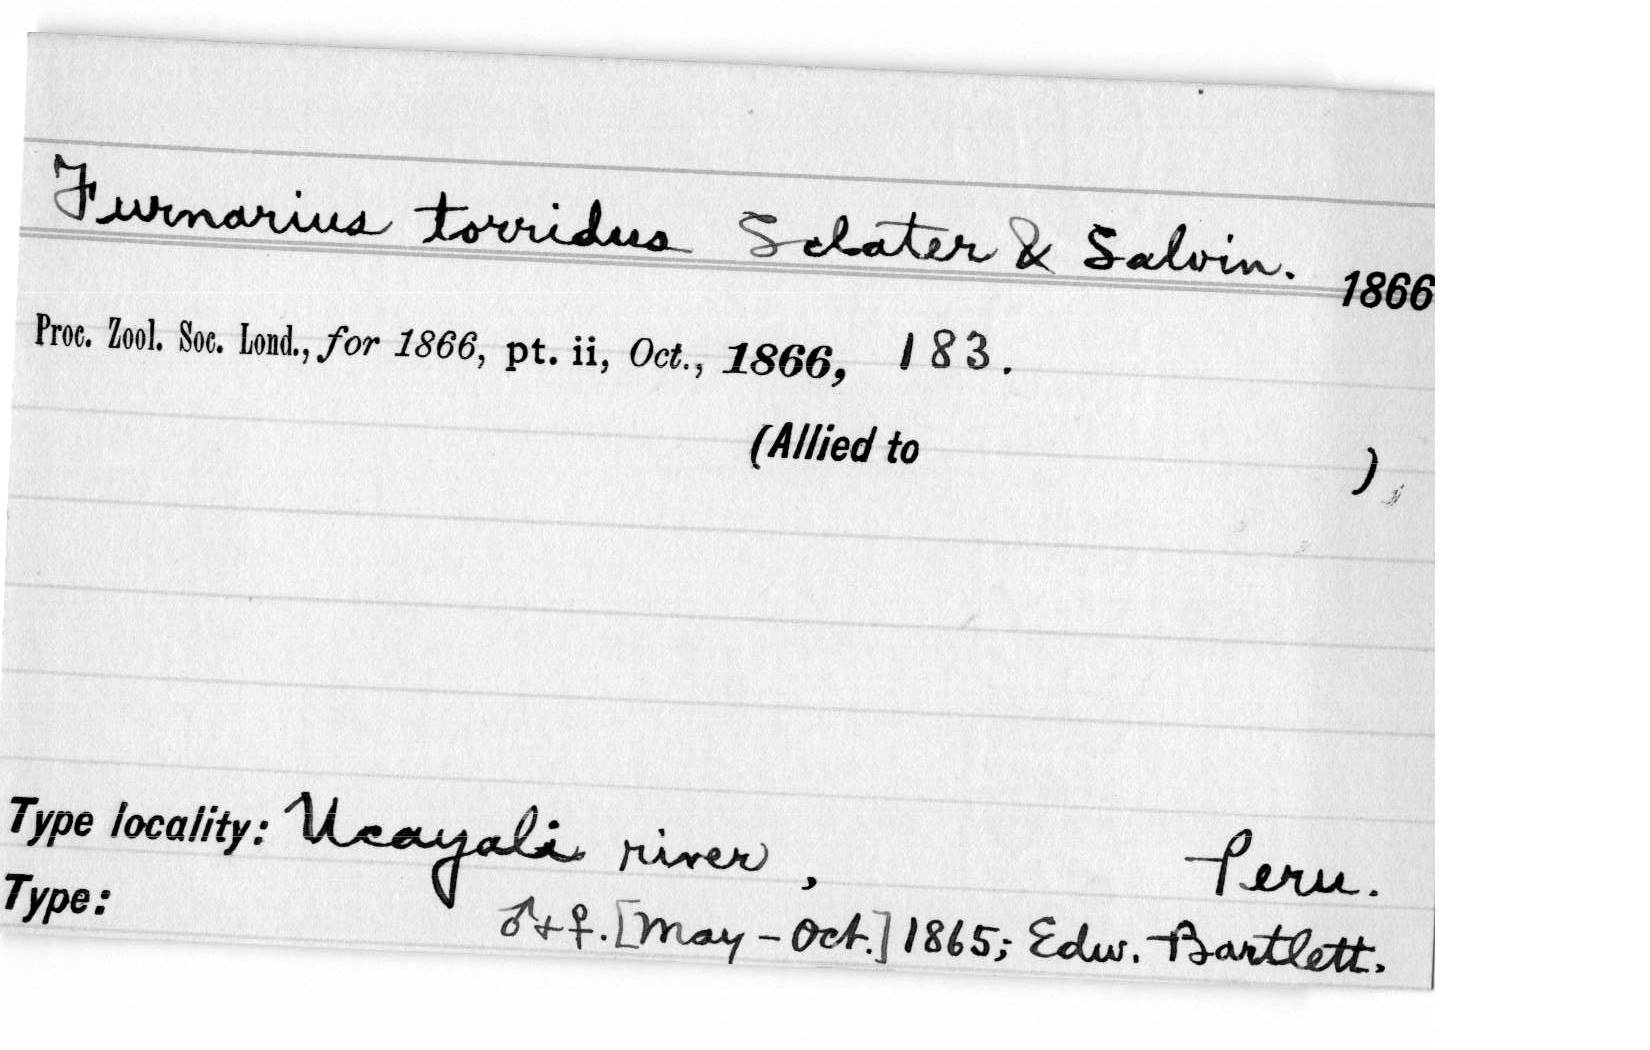 Furnarius torridus Sclater & Salvin. 1866
Proc. Zool. Soc. Lond., for 1866, pt. ii, Oct., 1866, 183.
(Allied to )
Type locality: Ucayali river, Peru.
Type: ♂+♀. [May – Oct.] 1865; Edw. Bartlett.